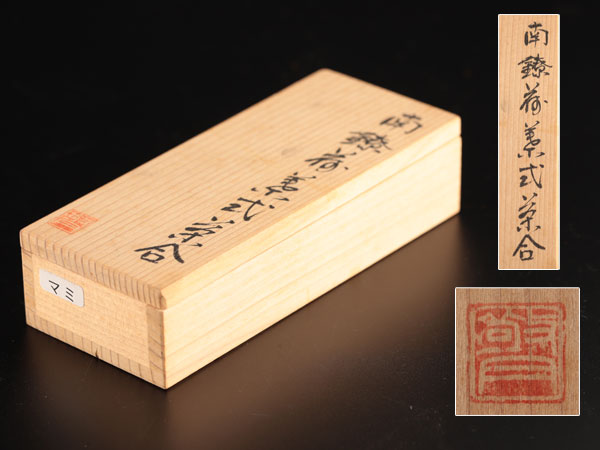 南鐐荷葉式茶合
マミ
南鐐荷葉式茶合